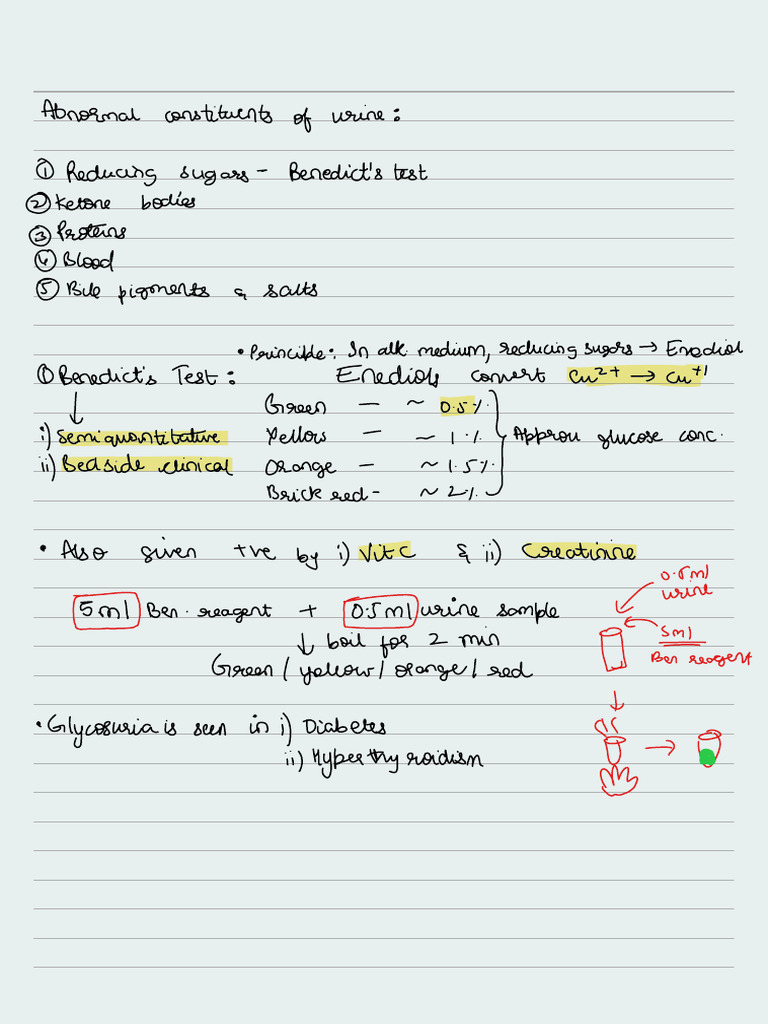 Abnormal constituents of urine:
① Reducing sugars - Benedict's test
② Ketone bodies
③ Proteins
④ Blood
⑤ Bile pigments & salts
• Principle: In alk. medium, reducing sugars → Enediol
① Benedict's Test: Enediols convert Cu²⁺ → Cu⁺¹
↓
i) Semiquantitative
ii) Bedside clinical
Green — ~ 0.5%
Yellow — ~ 1%
Orange — ~ 1.5%
Brick red - ~ 2%
} Approx glucose conc.
• Also given +ve by i) Vit C & ii) Creatinine
5ml Ben. reagent + 0.5ml urine sample
↓ boil for 2 min
Green / yellow / orange / red
0.5ml
urine
5ml
Ben reagent
• Glycosuria is seen in i) Diabetes
ii) Hyperthyroidism